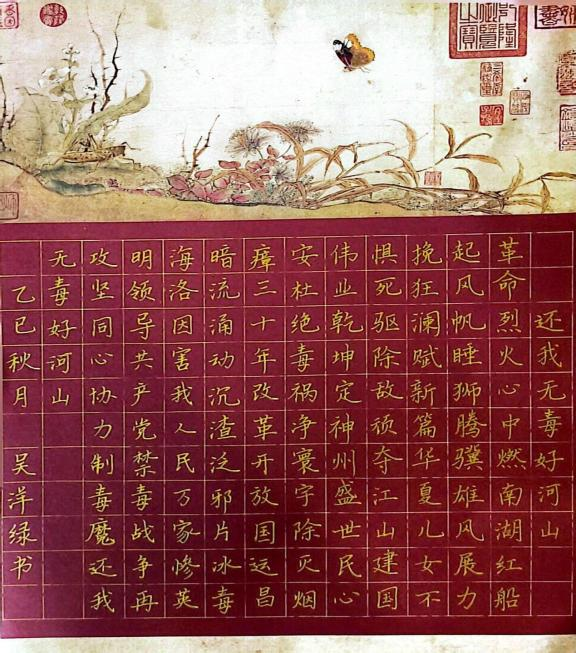 还我无毒好河山
革命烈火心中燃南湖红船
起风帆睡狮腾骥雄风展力
挽狂澜赋新篇华夏儿女不
惧死驱除敌顽夺江山建国
伟业乾坤定神州盛世民心
安杜绝毒祸净寰宇除灭烟
瘴三十年改革开放国运昌
暗流涌动沉渣泛邪片冰毒
海洛因害我人民万家惨英
明领导共产党禁毒战争再
攻坚同心协力制毒魔还我
无毒好河山
乙巳秋月 吴洋绿书